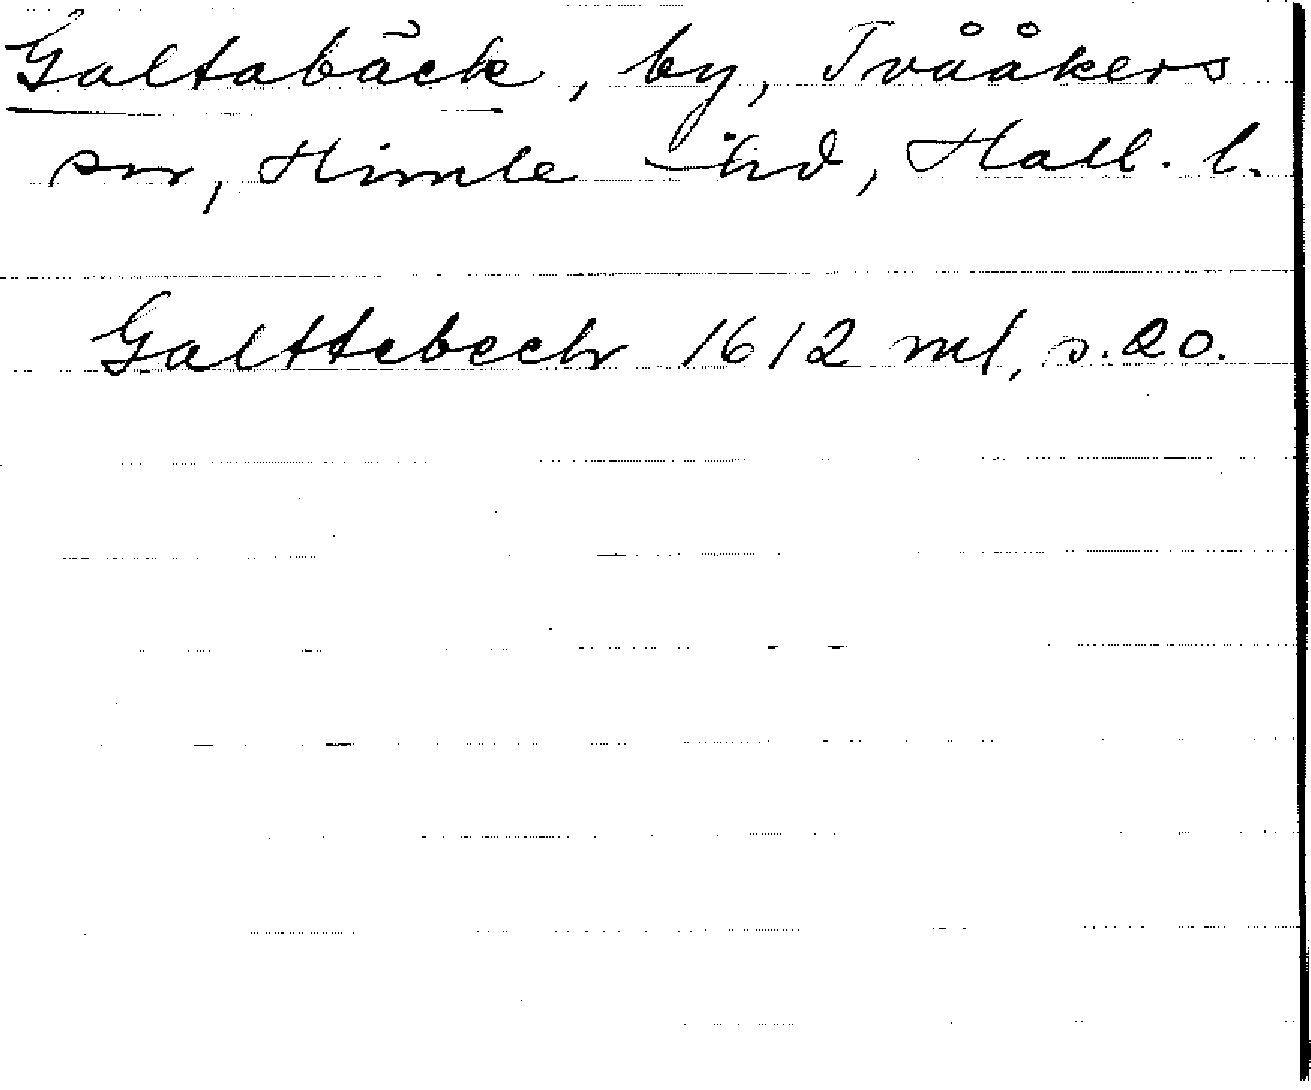 Galtabäck, by, Tvååkers
sn, Himle hd, Hall. l.
Galttebeck 1612 ml, s. 20.